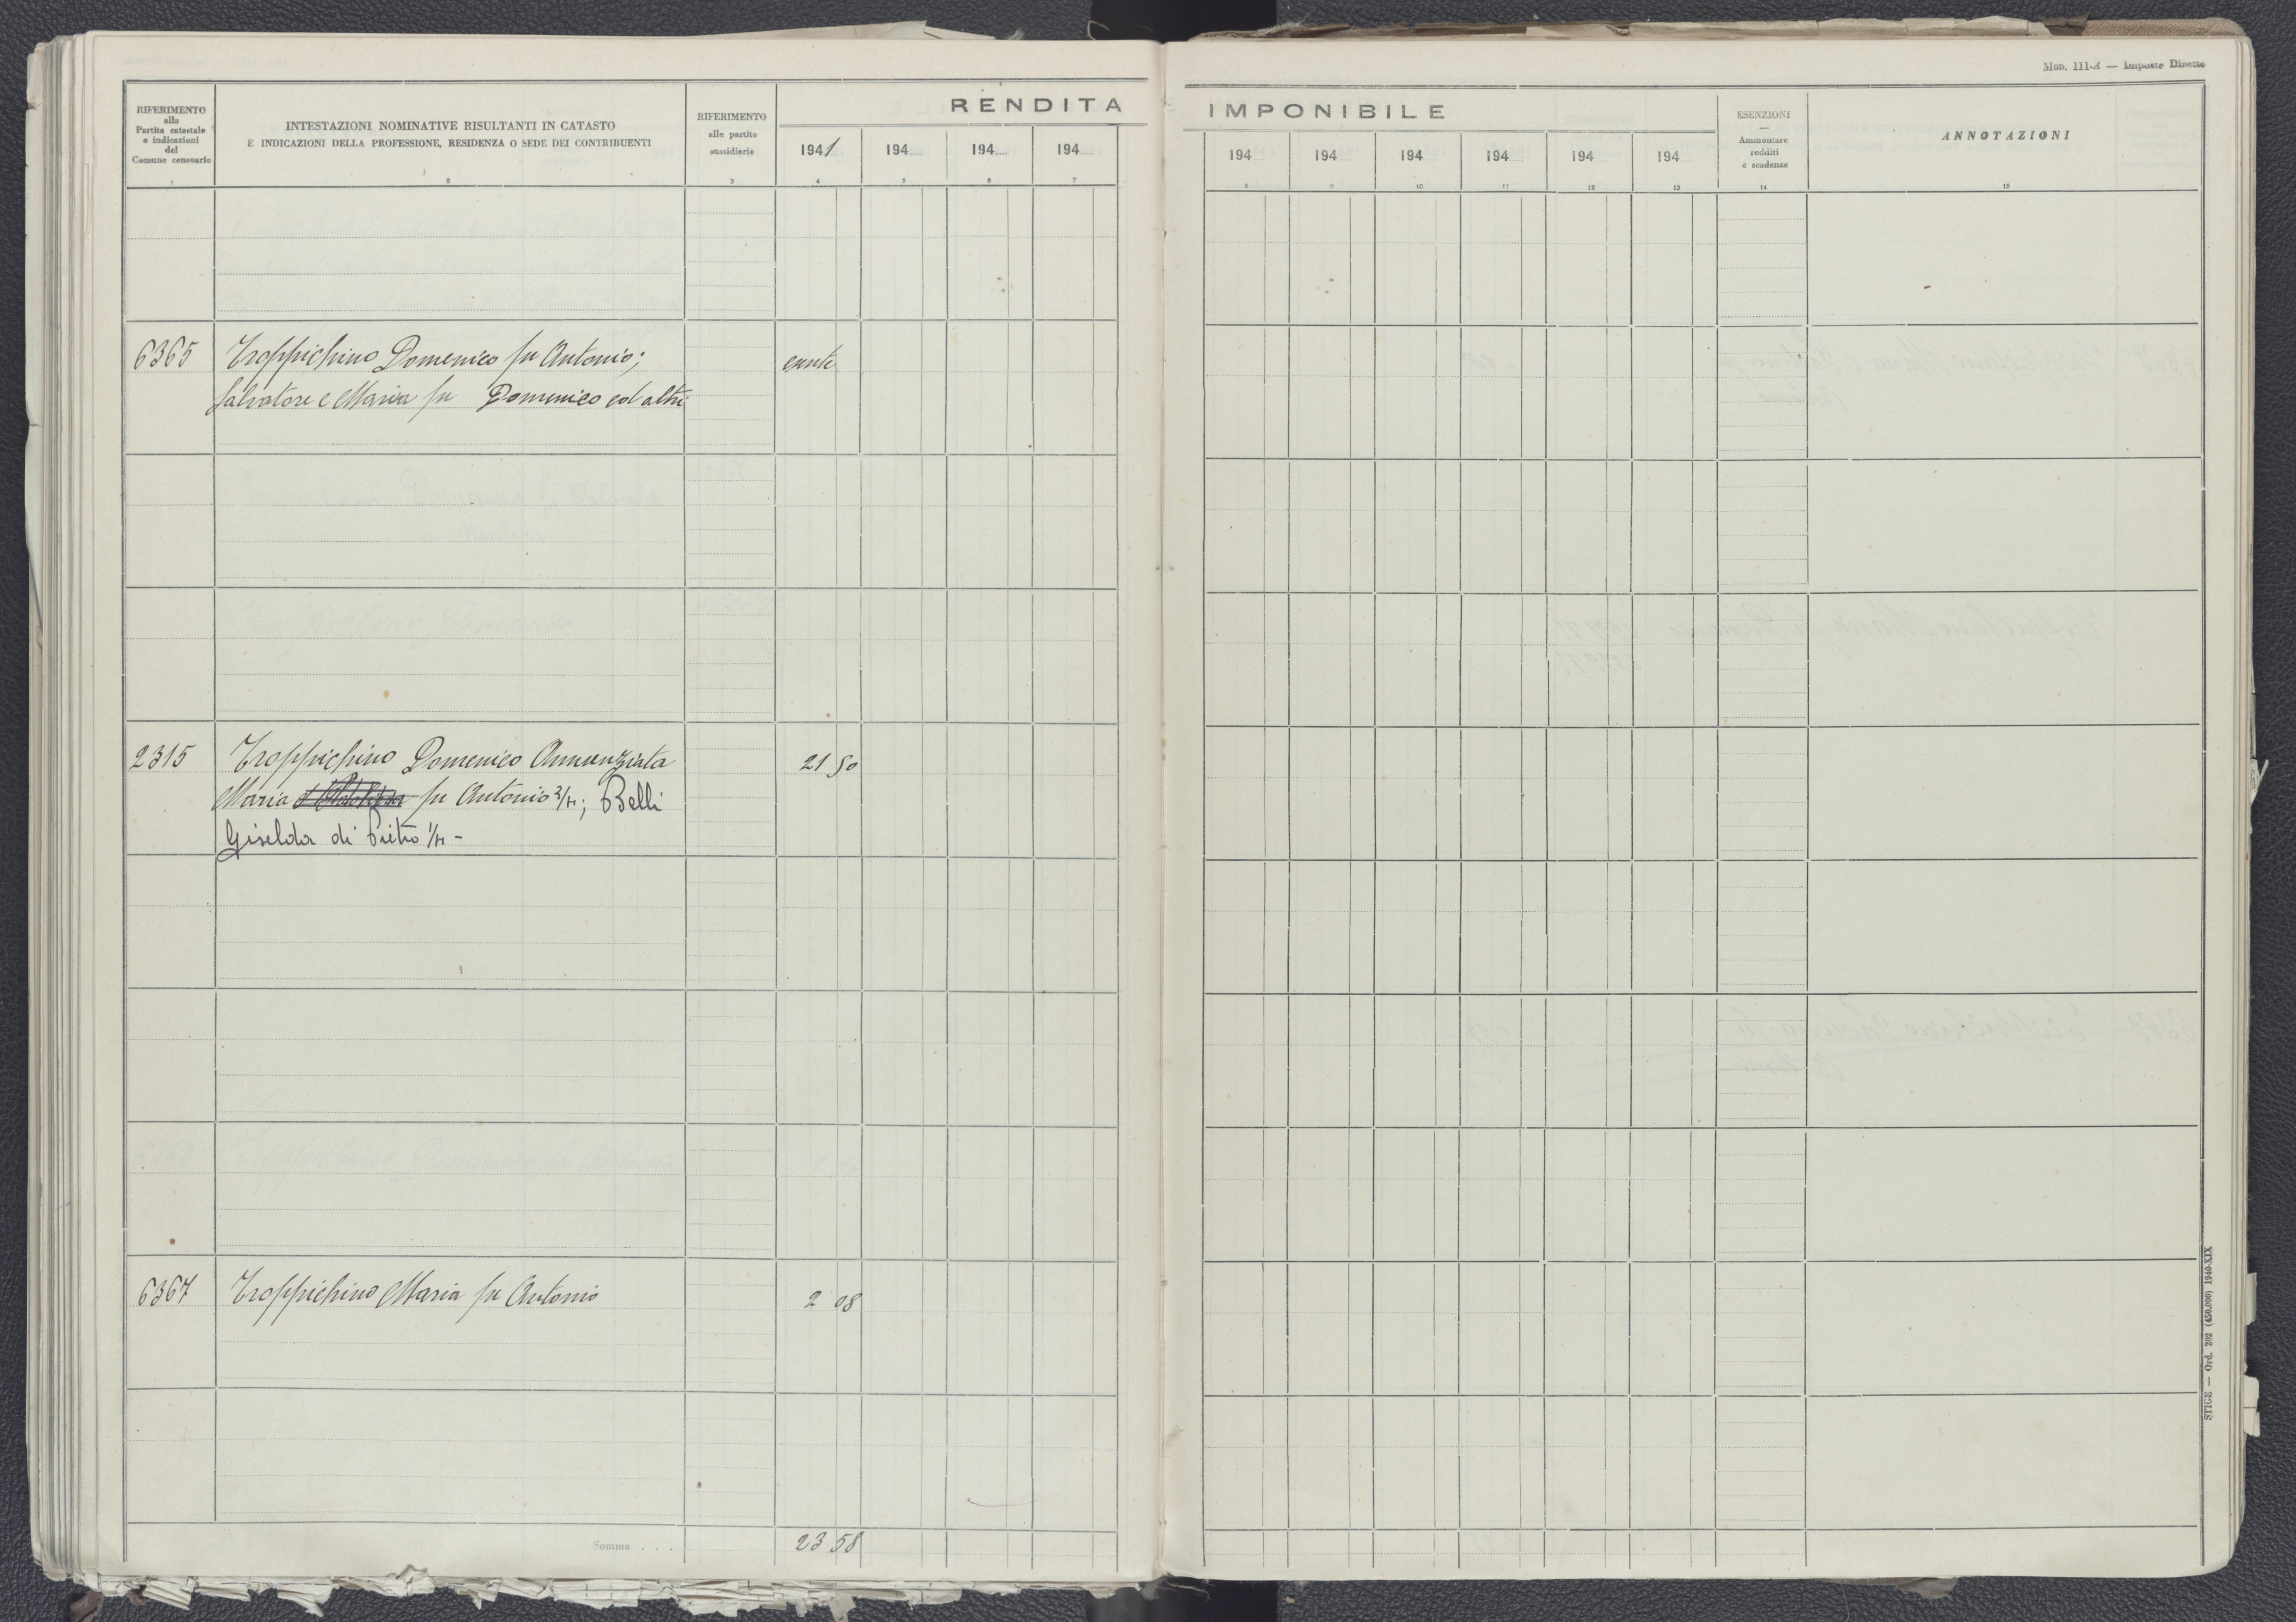 Mod. 111-A — Imposte Dirette
RIFERIMENTO
alla
Partita catastale
o indicazioni
del
Comune censuario
INTESTAZIONI NOMINATIVE RISULTANTI IN CATASTO
E INDICAZIONI DELLA PROFESSIONE, RESIDENZA O SEDE DEI CONTRIBUENTI
RIFERIMENTO
alle partite
sussidiarie
RENDITA IMPONIBILE
1941 194 194 194 194 194 194 194 194 194
ESENZIONI
—
Ammontare
redditi
o scadenze
ANNOTAZIONI
1 2 3 4 5 6 7 8 9 10 11 12 13 14 15
6365 Troppichino Domenico fu Antonio; esente
Salvatore e Maria fu Domenico ed altri
2315 Troppichino Domenico Annunziata 21 50
Maria fu Antonio; Belli
Giselda di Pietro
6367 Troppichino Maria fu Antonio 2 08
Somma . . . 23 58
STIGE — Ord. 202 (450.000) 1940-XIX